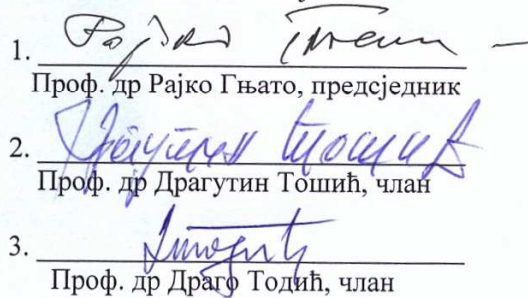 1.
Проф. др Рајко Гњато, предсједник
2. Драгутин Тошић
Проф. др Драгутин Тошић, члан
3.
Проф. др Драго Тодић, члан